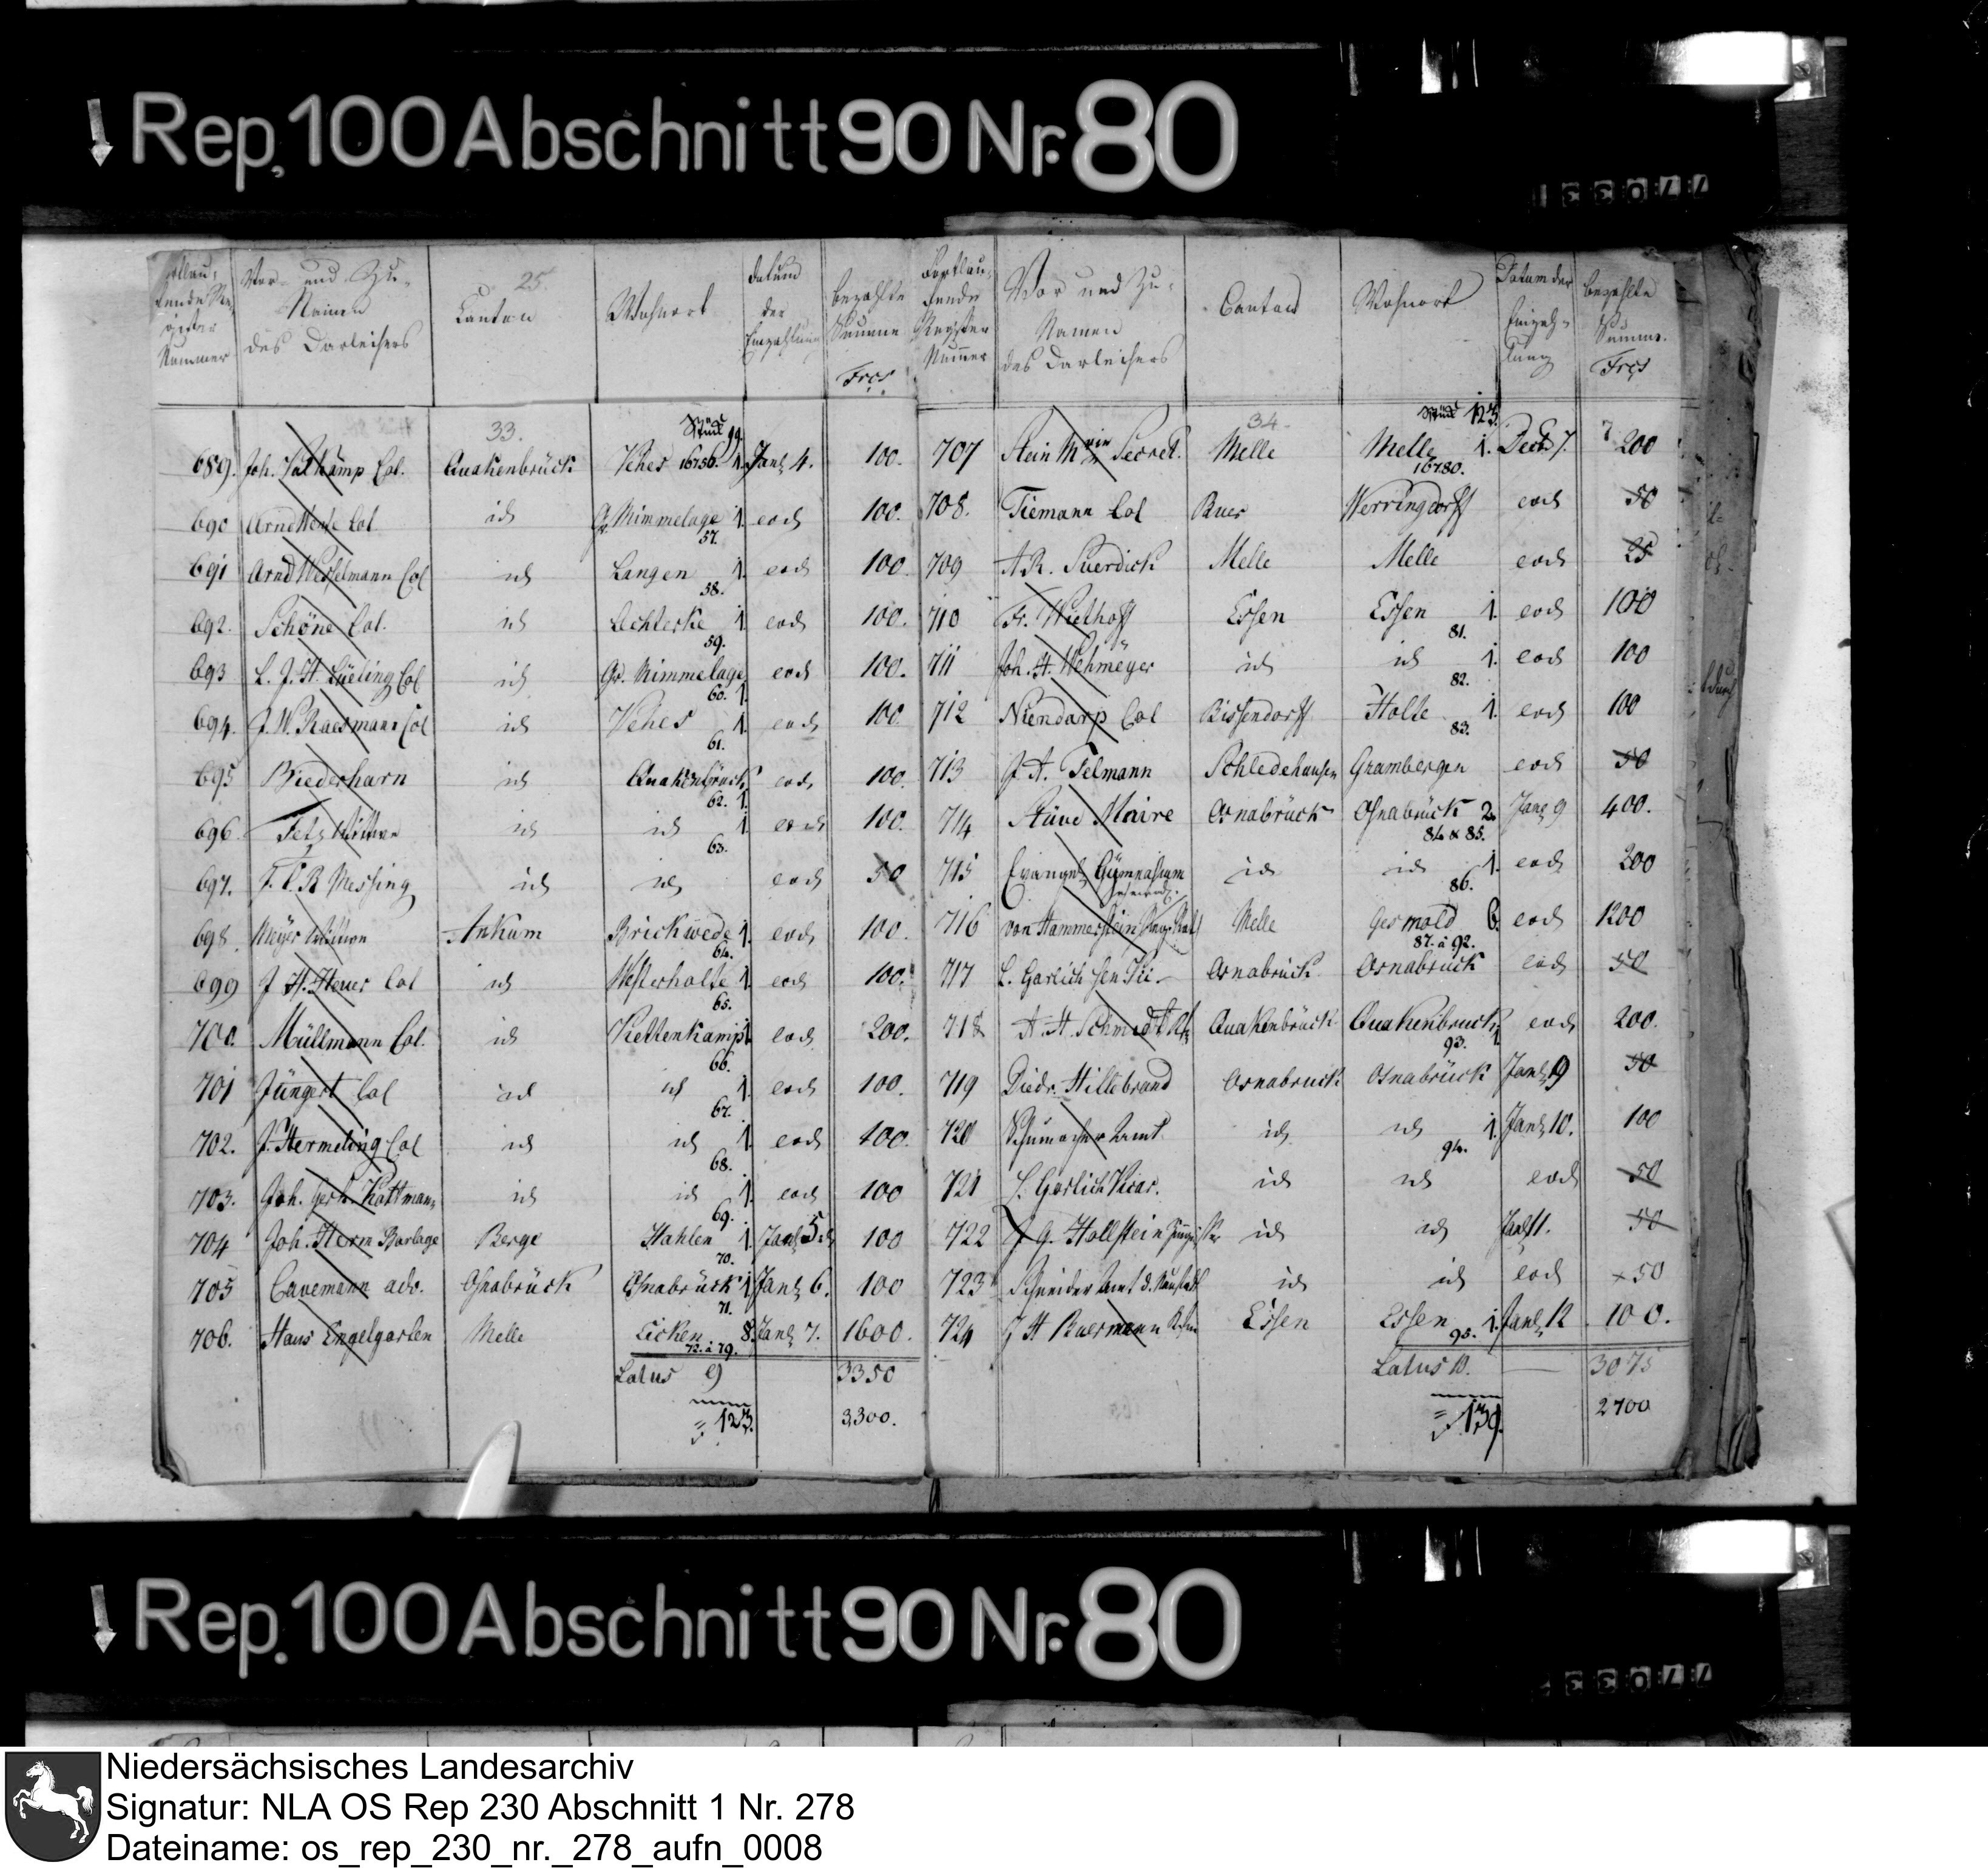 Rep. 100 Abschnitt 90 Nr. 80
77033
25.
Vor- und Zu-
Namen
des Darleihers
Kanton
Wohnort
datum
der
Einzahlung
bezahlte
Summe
Frcs
33.
Stück 99.
689. Joh. Col. Quakenbrück Vehs 16756. 1. Jan. 4. 100.
690 Arnd Col id Gr. Mimmelage 1. eod 100.
57.
691 Arnd Wesselmann Col id Langen 1. eod 100
58.
692. Schöne Col. id Lechterke 1. eod 100.
59.
693 L. J. H. Lüeling Col id Gr. Mimmelage eod 100.
60. 1.
694. J. W. Col id Vehs 1. eod 100.
61.
695 Biederharn id Quakenbrück eod 100.
62. 1.
696. id id 1. eod 100.
63.
697. Messing id id eod 50
698. Meyer Ankum Brickwede 1. eod 100.
64.
699 J H. Heuer Col id Westerholte 1. eod 100.
65.
700. Müllmann Col. id Kettenkamp 1. eod 200.
66.
701 Jüngert Col id id 1. eod 100.
67.
702. J. Hermeling Col id id 1. eod 100.
68.
703. Joh. Gerh. Kottmann id id 1. eod 100
69.
704 Joh. Herm Borlage Berge Hahlen 1. Jan. 5 100
70.
705 Cavemann adv. Osnabrück Osnabrück 1. Jan. 6. 100
71.
706. Haus Engelgarten Melle Eicken 8. Jan. 7. 1600.
72. à 79.
Latus 9 3350
= 123. 3300.
Fortlau-
fende
Register
Nummer
Vor und Zu-
Namen
des Darleihers
Canton
Wohnort
Datum der
Einzah-
lung
bezahlte
Summe.
Frcs
34.
Stück 123.
707 Stein Secret. Melle Melle 1. Dec. 7. 200
16780.
708. Tiemann Col Buer Werringdorff eod 50
709 A. R. Suerdick Melle Melle eod 25
710 Fr. Wiethoff Essen Essen 1. eod 100
81.
711 Joh. H. Wehmeyer id id 1. eod 100
82.
712 Niendarp Col Bissendorff Holte 1. eod 100
83.
713 J A. Telmann Schledehausen Grambergen eod 50
714 Stüve Maire Osnabrück Osnabrück 2. Jan. 9 400.
84 & 85.
715 Evangel. Gymnasium id id 1. eod 200
86.
716 von Hammerstein Melle Gesmold 6. eod 1200
87. à 92.
717 L. Garlich sen Vic. Osnabrück Osnabrück eod 50
718 A. H. Schmidt Quakenbrück Quakenbrück eod 200.
93. 1.
719 Diedr. Hillebrand Osnabruck Osnabrück Jan. 9 50
720 Schumacher Amt. id id 1. Jan. 10. 100
94.
721 S. Garlich Vicar. id id eod 50
722 J G. Hollstein id id Jan. 11. 50
723 Schneider Amt d. Neustadt id id eod 50
724 J H Buermann Essen Essen 1. Jan. 12 100.
95.
Latus 10. 3075
= 139. 2700
Rep. 100 Abschnitt 90 Nr. 80
77033
Niedersächsisches Landesarchiv
Signatur: NLA OS Rep 230 Abschnitt 1 Nr. 278
Dateiname: os_rep_230_nr._278_aufn_0008